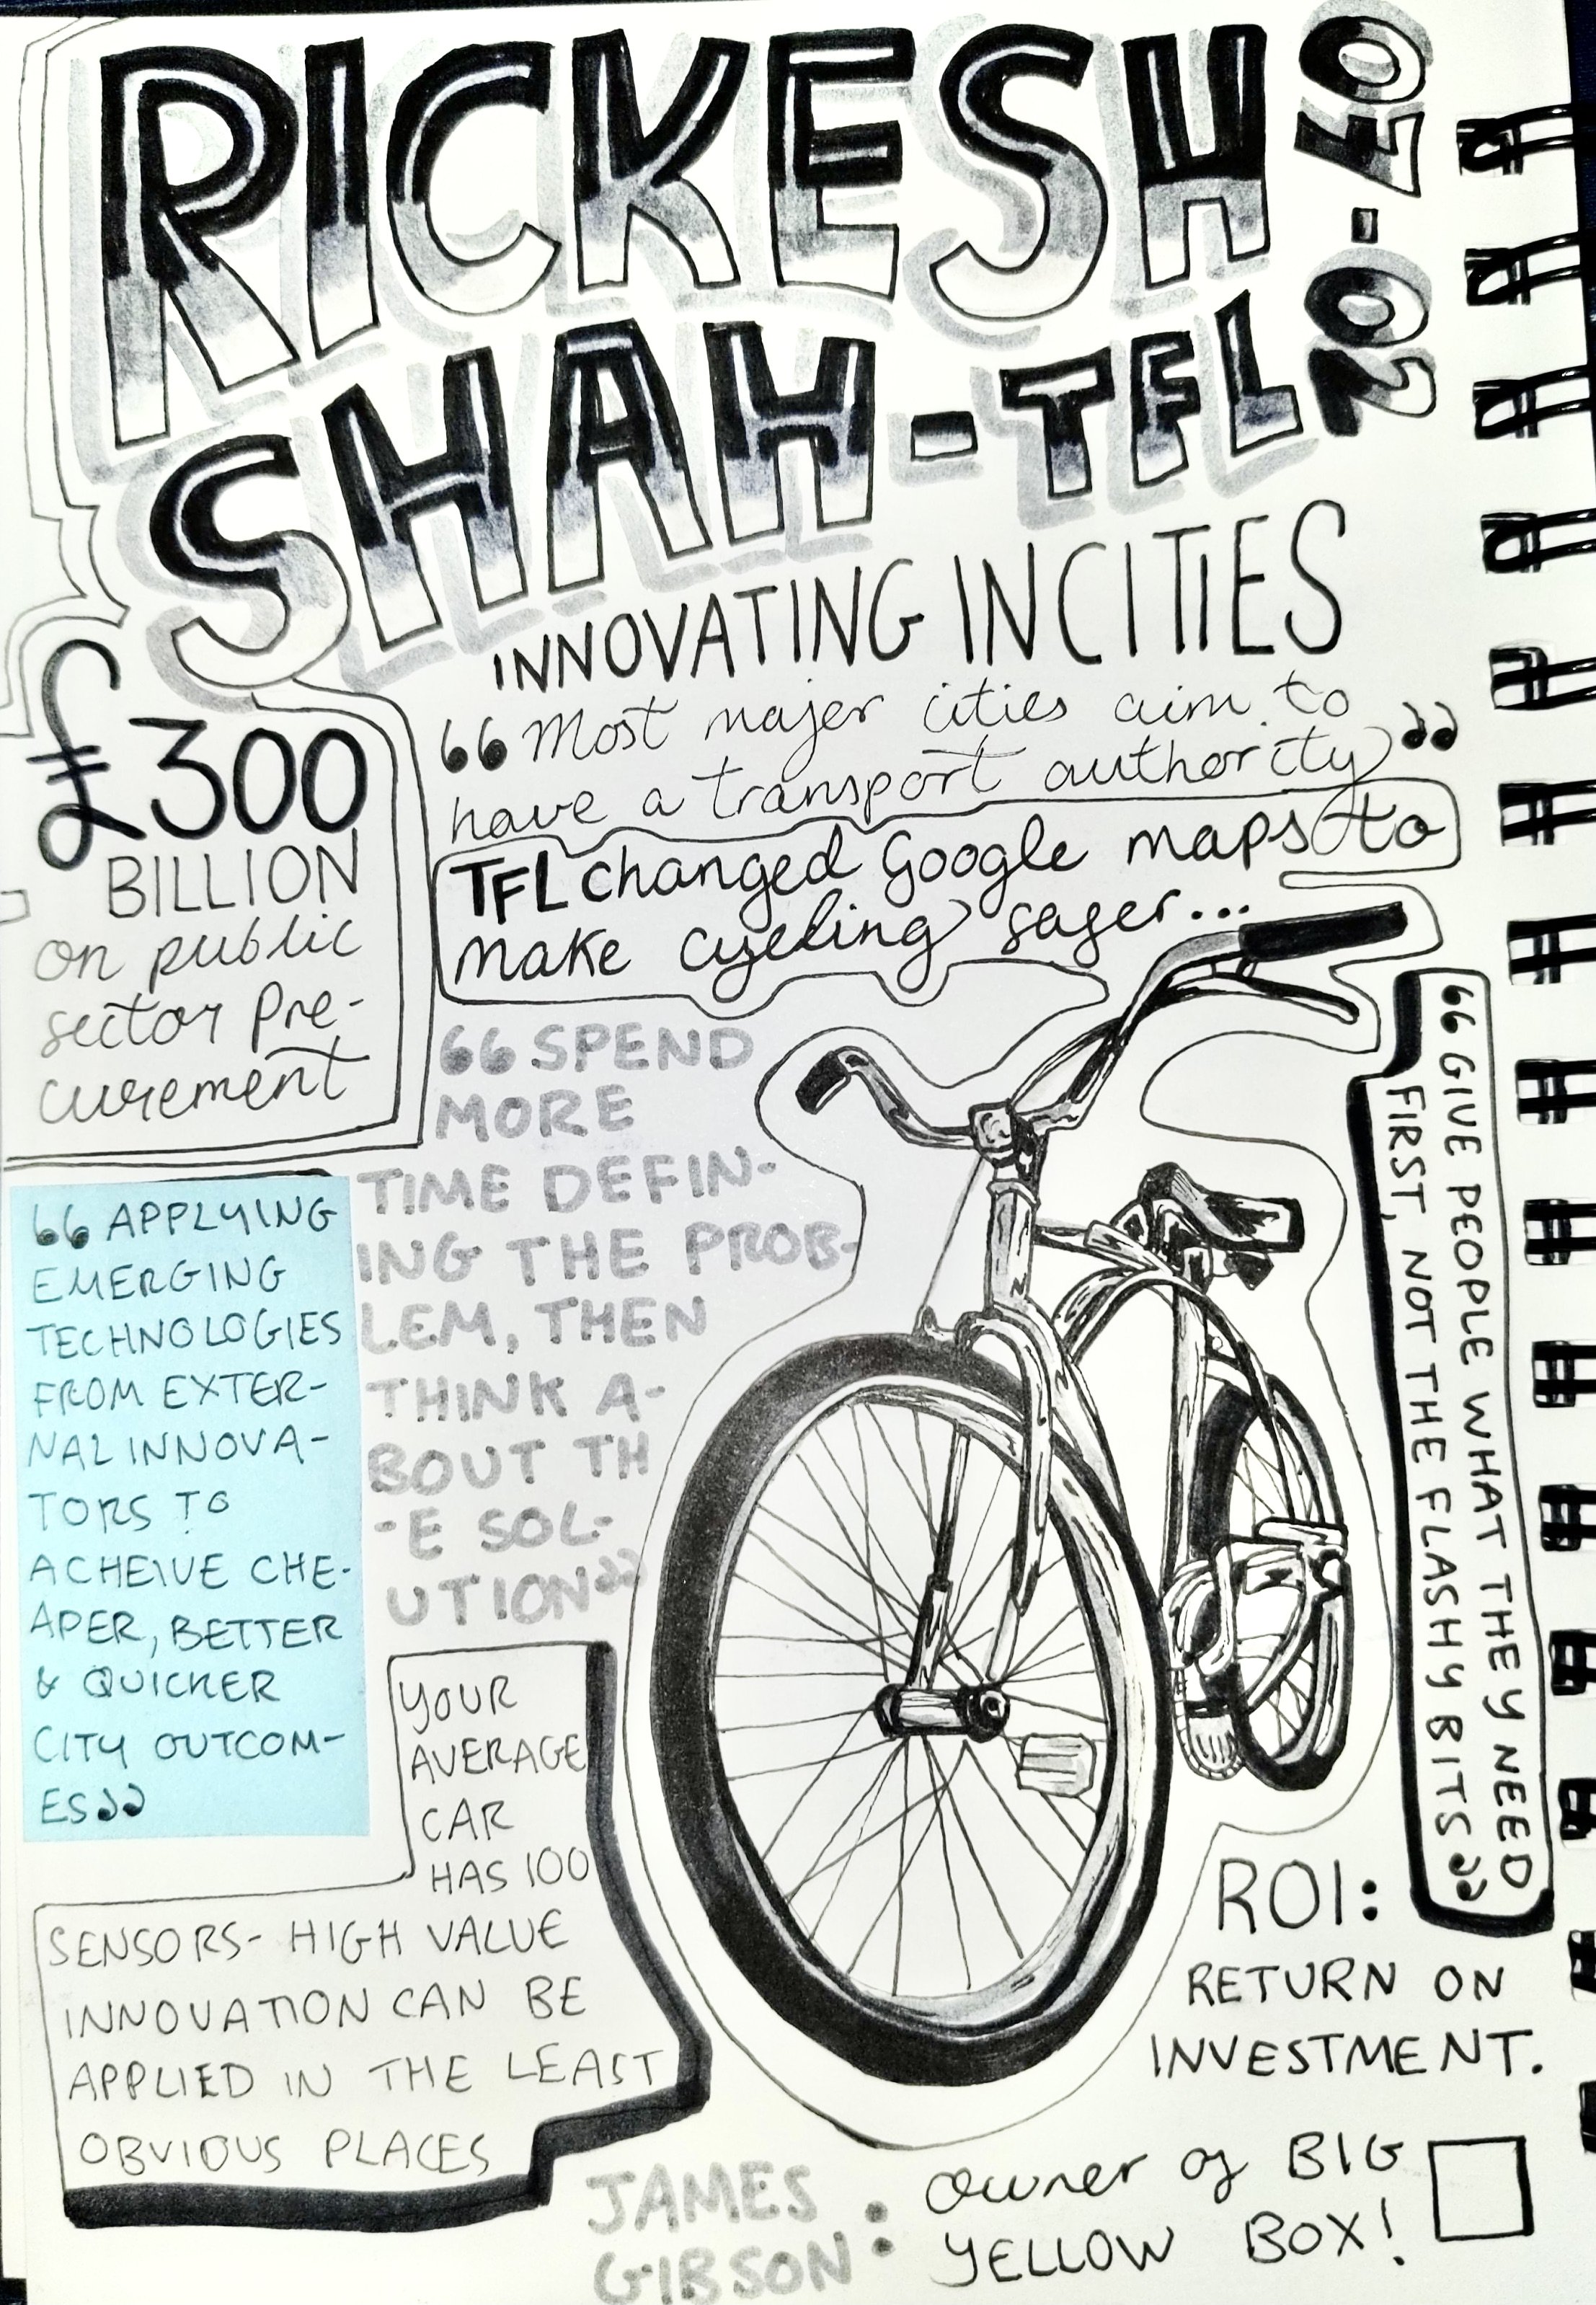 RICKESH
SHAH-TFL
20-40
INNOVATING IN CITIES
£300
BILLION
on public
sector pre-
curement
“Most majer cities aim to
have a transport authority”
TFL changed Google maps to
make cycling safer...
“GIVE PEOPLE WHAT THEY NEED
FIRST, NOT THE FLASHY BITS”
“SPEND
MORE
TIME DEFIN-
ING THE PROB-
LEM, THEN
THINK A-
BOUT TH
-E SOL-
UTION”
“APPLYING
EMERGING
TECHNOLOGIES
FROM EXTER-
NAL INNOVA-
TORS TO
ACHEIVE CHE-
APER, BETTER
& QUICKER
CITY OUTCOM-
ES”
YOUR
AVERAGE
CAR
HAS 100
SENSORS- HIGH VALUE
INNOVATION CAN BE
APPLIED IN THE LEAST
OBVIOUS PLACES
ROI:
RETURN ON
INVESTMENT.
JAMES
GIBSON:
owner of BIG
YELLOW BOX!